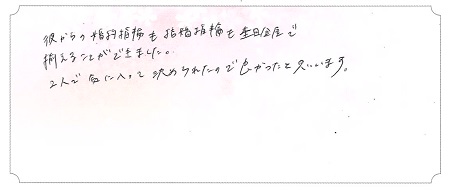 彼からの婚約指輪も結婚指輪も杢目金屋で
揃えることができました。
2人で気に入って決められたので良かったと思います。